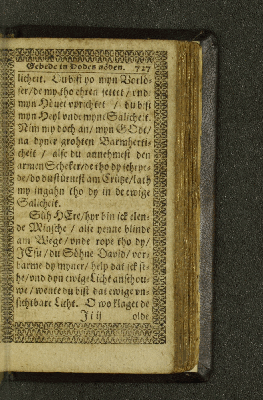 Gebede in Doden nöden. 727
licheit. Du bist yo myn Vorlö-
ser/de my tho ehren settet/vnd
myn Höuet vprichtet / du bist
myn Heyl vnde myne Salicheit.
Nim my doch an/ myn GOdt/
na dyner grohten Barmherti-
cheit / alse du annehmest den
armen Scheker/de tho dy schrye-
de/do du sturuest am Crütze/lath
my ingahn tho dy in de ewige
Salicheit.
Süh HEre/hyr bin ick elen-
de Minsche / alse yenne blinde
am Wege/vnde rope tho dy/
JEsu/du Söhne David/ vor-
barme dy myner/help dat ick se-
he/vnd dyn ewige Licht anschou-
we/wente du bist dat ewige vn-
sichtbare Licht. O wo klaget de
Ji iij olde